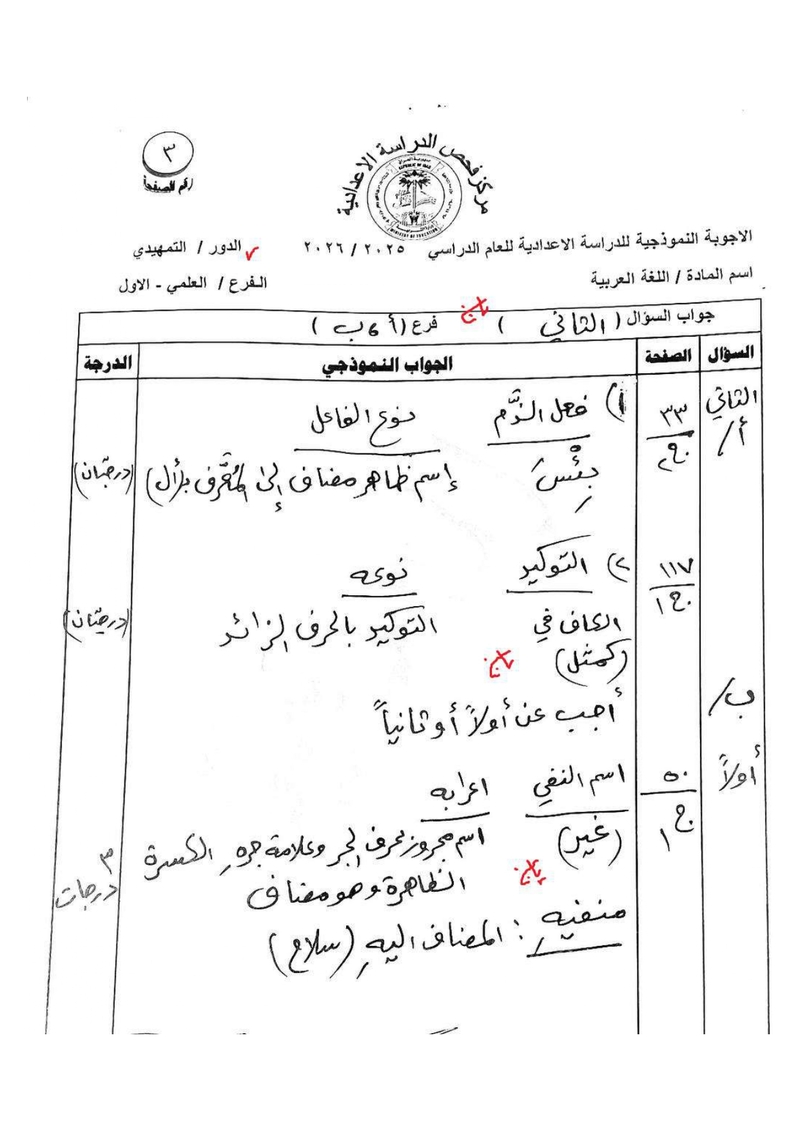 ٣
رقم الصفحة
مركز فحص الدراسة الاعدادية
الاجوبة النموذجية للدراسة الاعدادية للعام الدراسي ٢٠٢٥ / ٢٠٢٦ الدور / التمهيدي
اسم المادة / اللغة العربية الفرع / العلمي - الاول
جواب السؤال ( الثاني ) فرع ( أ ، ب )
السؤال الصفحة الجواب النموذجي الدرجة
الثاني
أ / ٣٣ ج٢ ١) فعل الذّم نوع الفاعل
بِئْسَ إسم ظاهر مضاف إلى المُعَّرف بـ(أل) (درجتان)
١١٧ ج١ ٢) التوكيد نوعه
الكاف في التوكيد بالحرف الزائد (درجتان)
(كمثل)
ب / أجب عن أولاً أو ثانياً
أولاً ٥٠ ج١ اسم النفي اعرابه
(غير) اسم مجرور بحرف الجر وعلامة جرهِ الكسرة ٣ درجات
الظاهرة وهو مضاف
منفيهِ : المضاف اليهِ (سلاح)